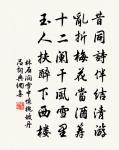 昔同詩伴結清游
亂折梅花當酒籌
十二闌干風雪里
玉人扶醉下西樓
林石澗雪中懷